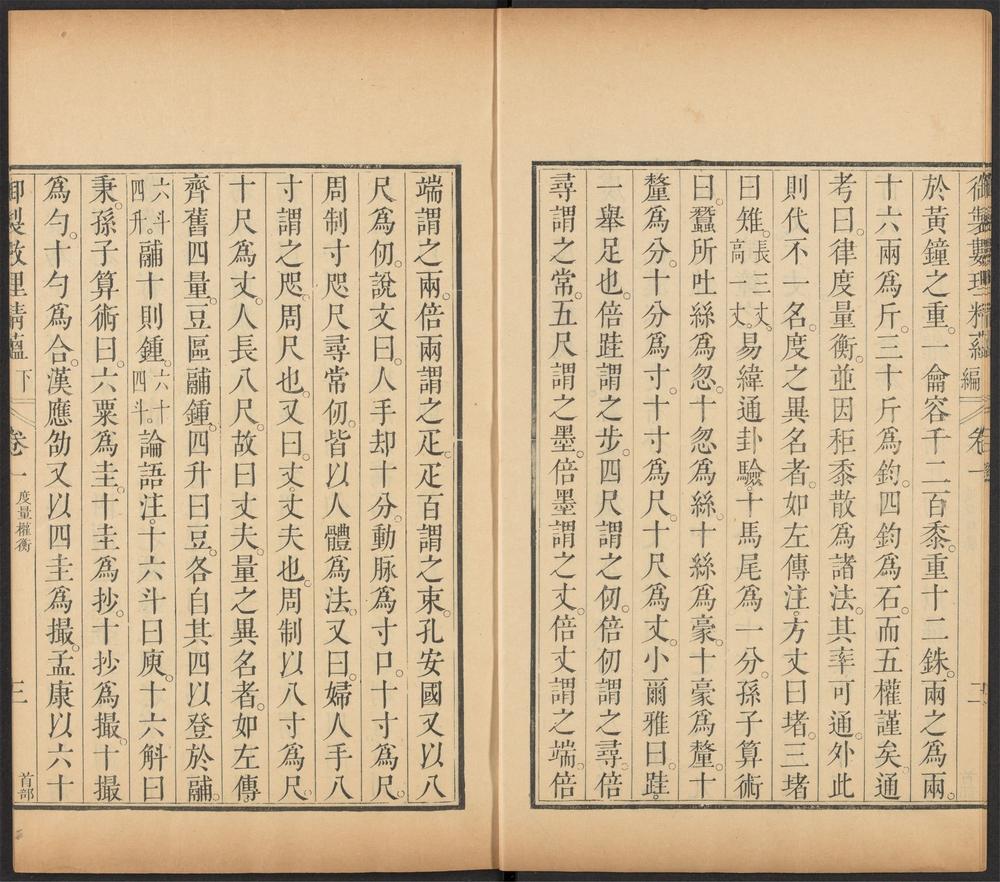 御製數理精蘊 編 卷一 二
於黃鐘之重一龠容千二百黍重十二銖兩之為兩
十六兩為斤三十斤為鈞四鈞為石而五權謹矣通
考曰律度量衡並因秬黍散為諸法其率可通外此
則代不一名度之異名者如左傳注方丈曰堵三堵
曰雉長三丈高一丈易緯通卦驗十馬尾為一分孫子算術
曰蠶所吐絲為忽十忽為絲十絲為豪十豪為釐十
釐為分十分為寸十寸為尺十尺為丈小爾雅曰跬
一舉足也倍跬謂之步四尺謂之仞倍仞謂之尋倍
尋謂之常五尺謂之墨倍墨謂之丈倍丈謂之端倍
端謂之兩倍兩謂之疋疋百謂之束孔安國又以八
尺為仞說文曰人手却十分動脉為寸口十寸為尺
周制寸咫尺尋常仞皆以人體為法又曰婦人手八
寸謂之咫周尺也又曰丈丈夫也周制以八寸為尺
十尺為丈人長八尺故曰丈夫量之異名者如左傳
齊舊四量豆區鬴鍾四升曰豆各自其四以登於鬴
六斗四升鬴十則鍾六十四斗論語注十六斗曰庾十六斛曰
秉孫子算術曰六粟為圭十圭為抄十抄為撮十撮
為勺十勺為合漢應劭又以四圭為撮孟康以六十
御製數理精蘊 下 卷一 度量權衡 三 首部